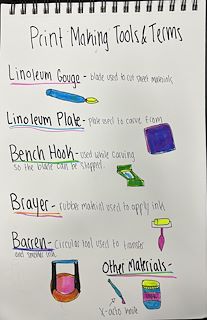 Print Making Tools & Terms
Linoleum Gouge - blade used to cut sheet materials
Linoleum Plate - plate used to carve from
Bench Hook - used while carving
so the blade can be stopped.
Brayer - rubber material used to apply ink
Barren - circular tool used to transfer
and smother ink
Other Materials -
X-acto knife